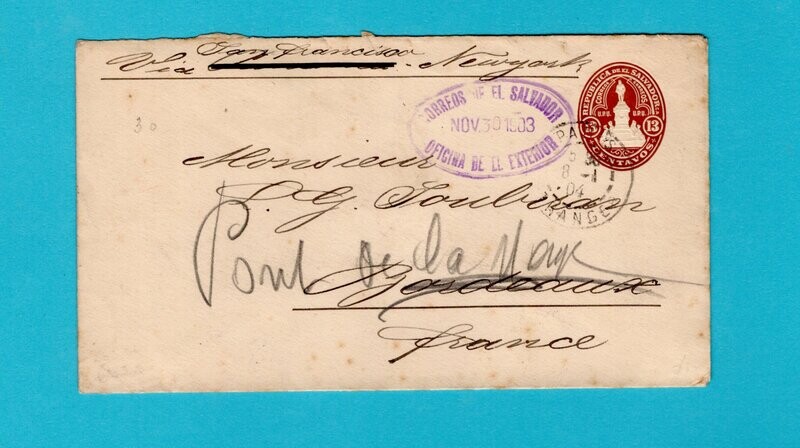 San Francisco
Via Newyork
30
CORREOS DE EL SALVADOR
NOV 30 1903
OFICINA DE EL EXTERIOR
REPUBLICA DE EL SALVADOR
CORREOS
U.P.U. U.P.U.
13 13
CENTAVOS
PARIS
8 -1
04
Monsieur
P. G. Soubiran
Pont de la Maye
Bordeaux
France